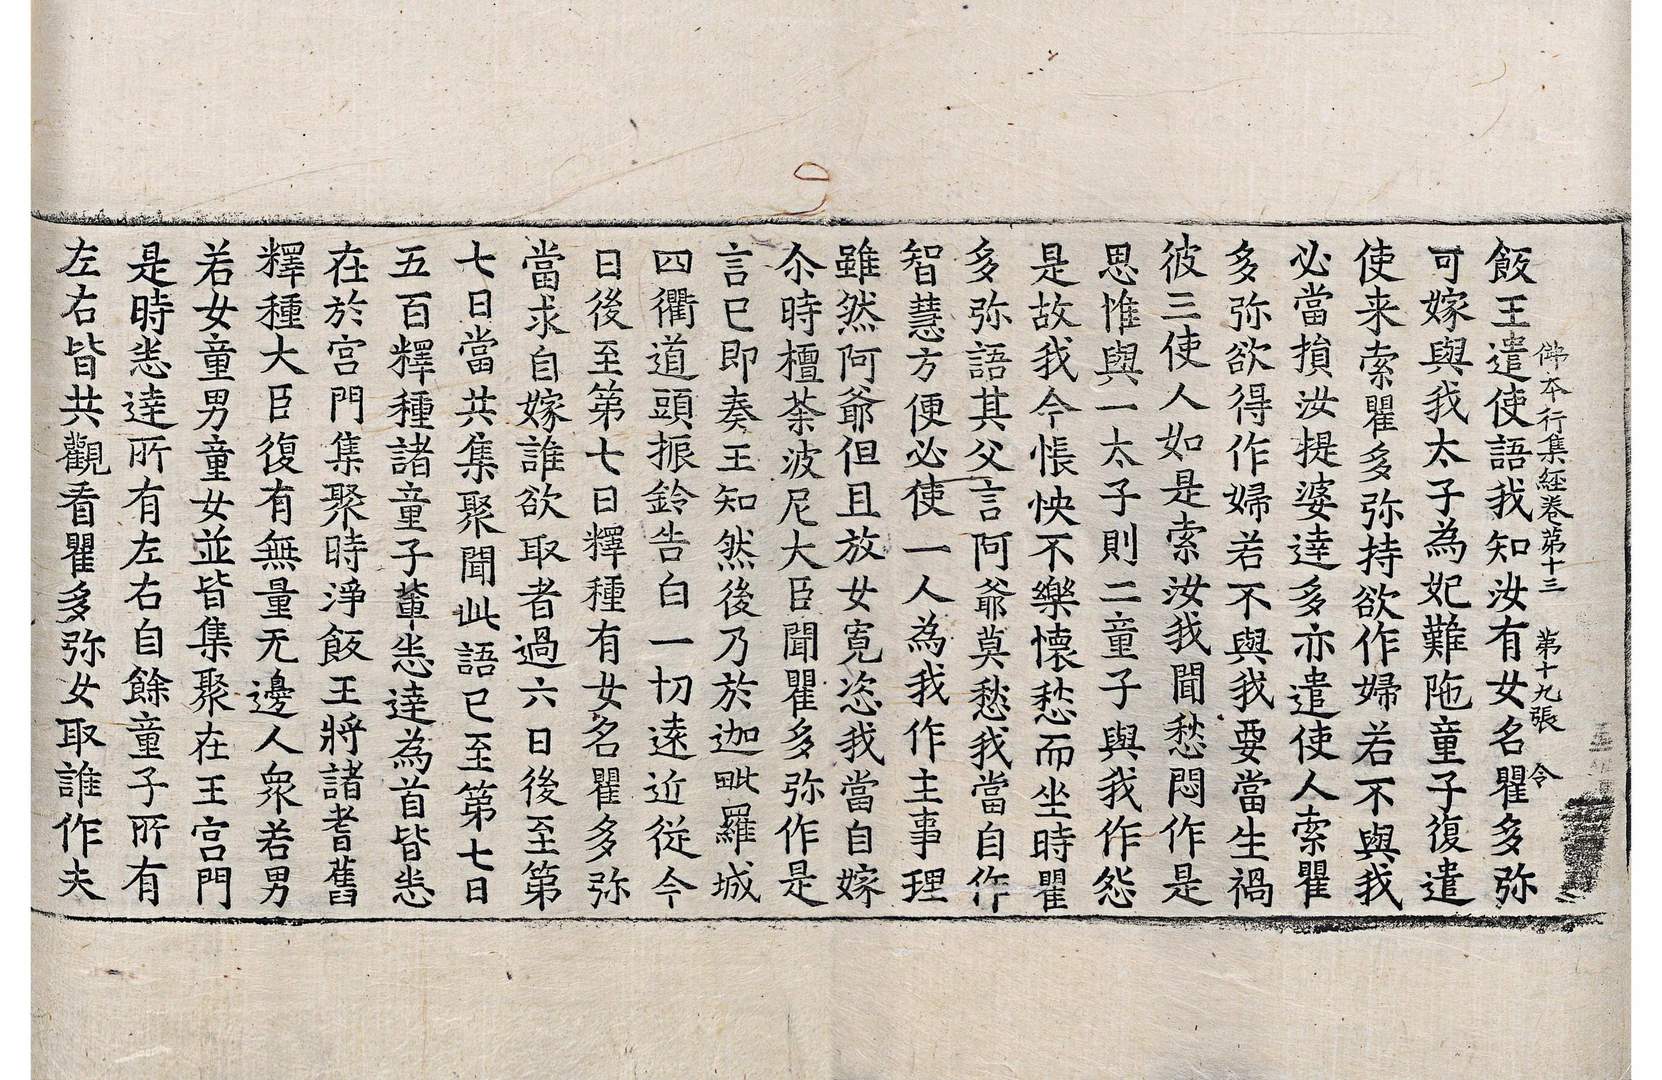 佛本行集経卷第十三 第十九張 令
飯王遣使語我知汝有女名瞿多弥
可嫁與我太子為妃難陁童子復遣
使来索瞿多弥持欲作婦若不與我
必當損汝提婆達多亦遣使人索瞿
多弥欲得作婦若不與我要當生禍
彼三使人如是索汝我聞愁悶作是
思惟與一太子則二童子與我作怨
是故我今悵怏不樂懷愁而坐時瞿
多弥語其父言阿爺莫愁我當自作
智慧方便必使一人為我作主事理
雖然阿爺但且放女寬恣我當自嫁
尒時檀茶波尼大臣聞瞿多弥作是
言已即奏王知然後乃於迦毗羅城
四衢道頭振鈴告白一切遠近従今
日後至第七日釋種有女名瞿多弥
當求自嫁誰欲取者過六日後至第
七日當共集聚聞此語已至第七日
五百釋種諸童子輩悉達為首皆悉
在於宮門集聚時淨飯王將諸耆舊
釋種大臣復有無量无邊人衆若男
若女童男童女並皆集聚在王宮門
是時悉達所有左右自餘童子所有
左右皆共觀看瞿多弥女取誰作夫